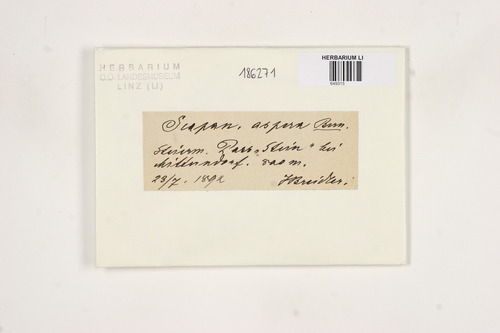 HERBARIUM
O.Ö. LANDESMUSEUM
LINZ (LI)
186271
HERBARIUM LI
Scapan. aspera Bern.
Steierm. Pass „Stein“ bei
Mitterndorf. 800 m.
23/7. 1892
JBreidler.